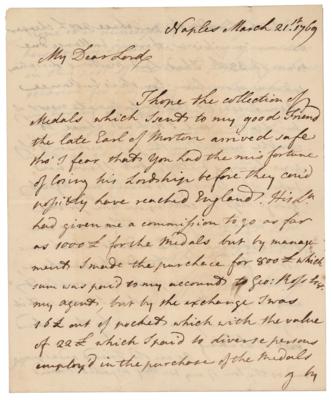 Naples March 21.st 1769
My Dear Lord
I hope the collection of
Medals which I sent to my good Friend
the late Earl of Morton arrived safe
tho' I fear that You had the misfortune
of losing his Lordship before they cou'd
possibly have reached England. His Lp
had given me a commission to go as far
as 1000£ for the Medals but by manage
ment I made the purchace for 800£ which
sum was paid to my account to Geo: Ross Esq.r
my agent, but by the exchange I was
16£ out of pocket which with the value
of 22£ which I paid to diverse persons
employ'd in the purchase of the Medals